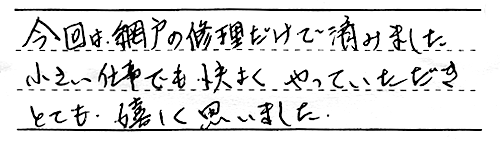 今回は網戸の修理だけで済みました
小さい仕事でも快よくやっていただき
とても嬉しく思いました.